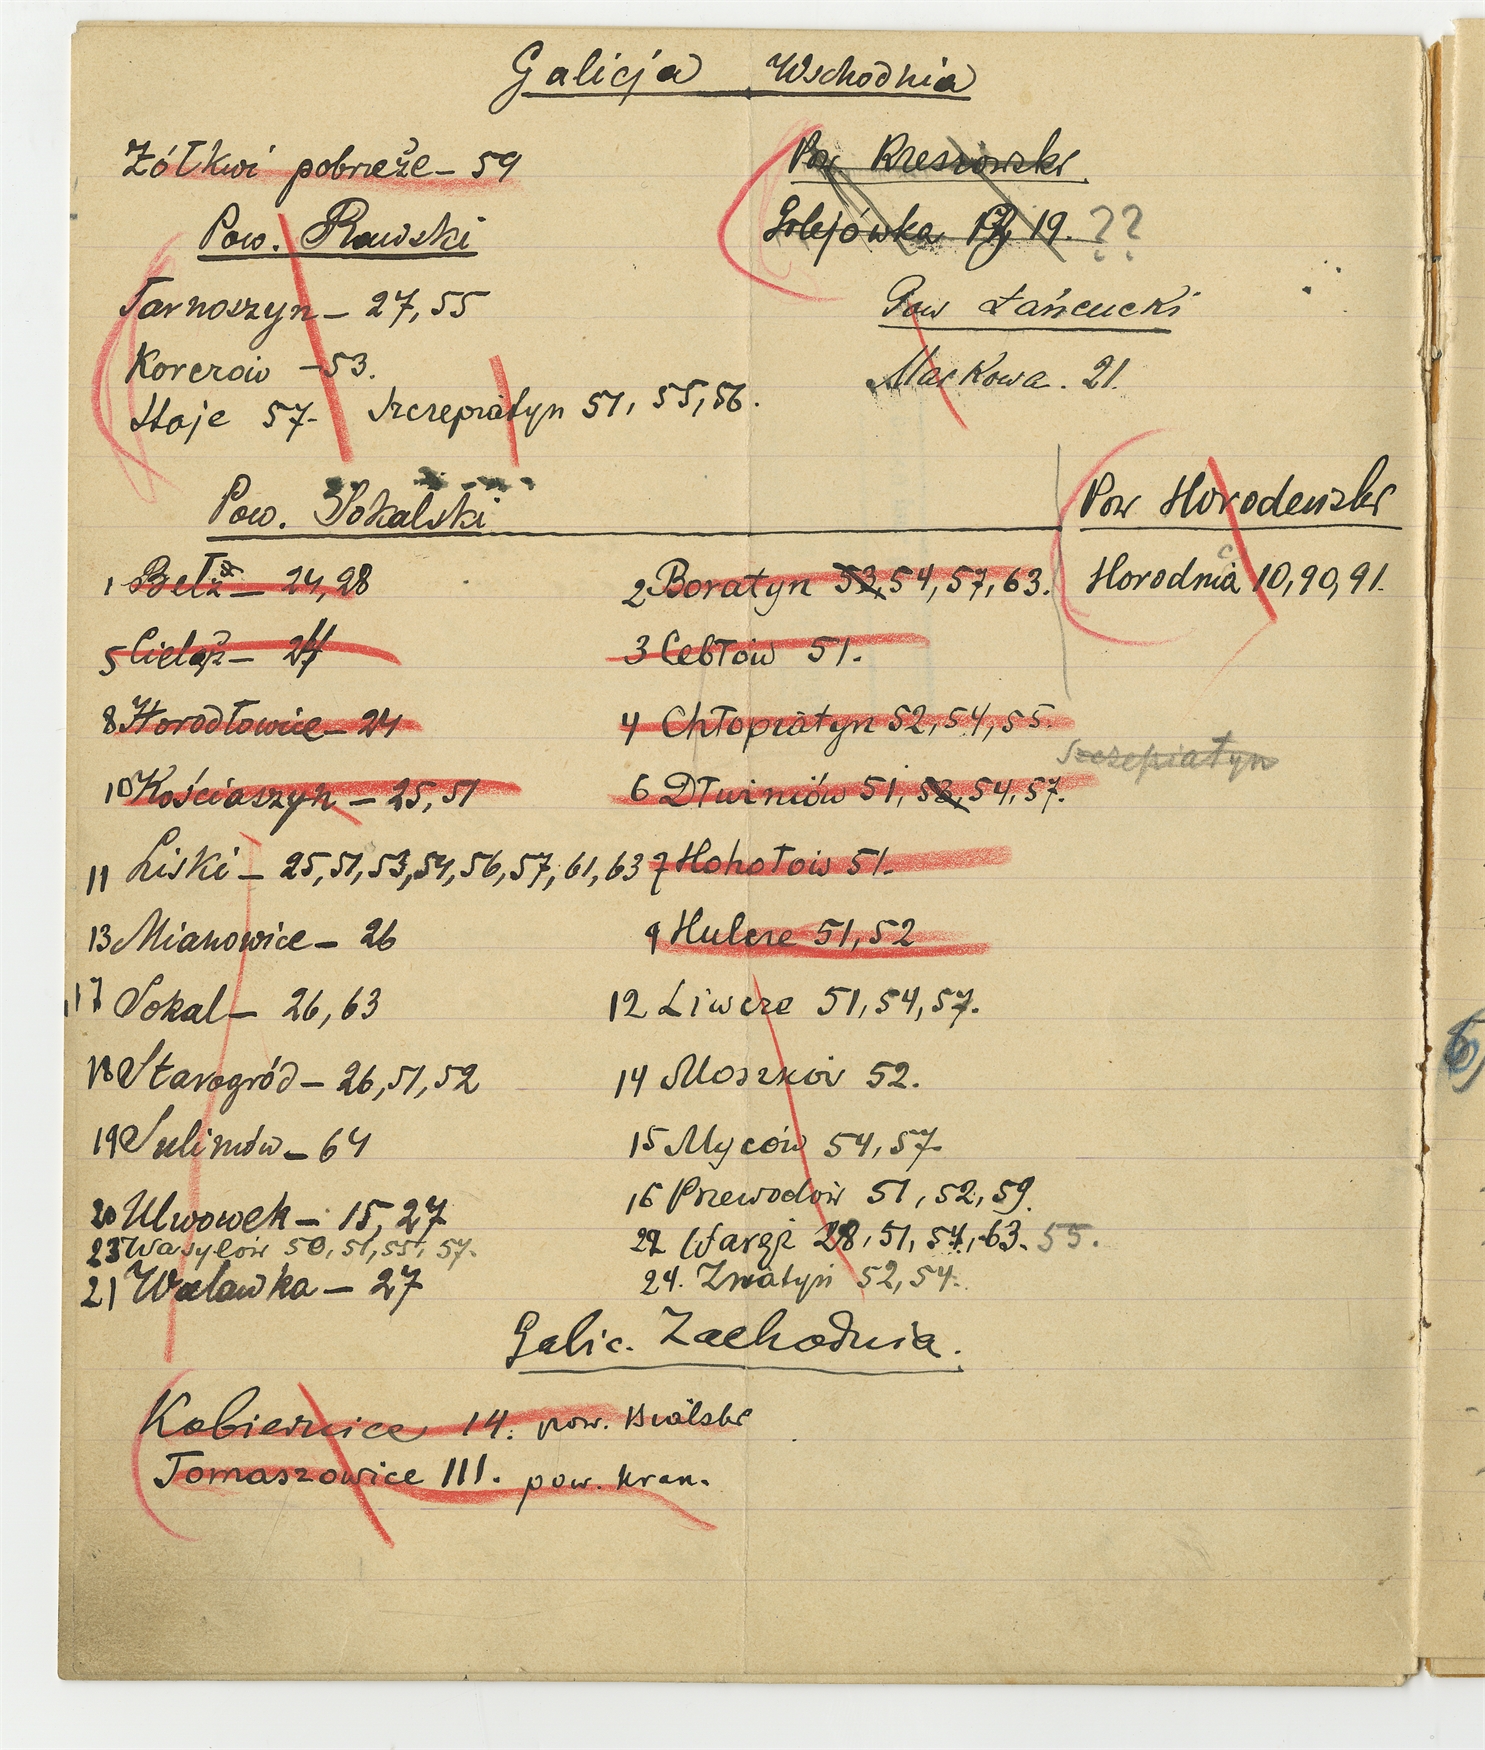 Galicja Wschodnia
Żółkwi pobrzeże – 59
Pow. Rawski
Tarnoszyn – 27, 55
Korczów – 53.
Staje 57. Szczepiatyn 51, 55, 56.
Pow. Rzeszowski
19. ??
Pow Łańcucki
Markowa. 21.
Pow. Sokalski
1 Bełz – 24, 28
5 Cieląż – 24
8 Horodłowice – 24
10 Kościaszyn – 25, 51
11 Liski – 25, 51, 53, 54, 56, 57, 61, 63
13 Mianowice – 26
17 Sokal – 26, 63
18 Starogród – 26, 51, 52
19 Sulimów – 64
20 Ulwowek – 15, 27
23 Wasylów 50, 51, 55, 57.
21 Waławka – 27
2 Boratyn 53, 54, 57, 63.
3 Cebłów 51.
4 Chłopiatyn 52, 54, 55.
6 Dłużniów 51, 53, 54, 57.
7 Hohołów 51.
9 Hulcze 51, 52
12 Liwcze 51, 54, 57.
14 Moszków 52.
15 Myców 54, 57.
16 Przewodów 51, 52, 59.
22 Waręż 28, 51, 54, 63. 55.
24. Żniatyń 52, 54.
Pow Horodenski
Horodnica 10, 90, 91.
Szczepiatyn
Galic. Zachodnia.
Kobiernice 14. pow. Bialski
Tomaszowice 111. pow. krak.